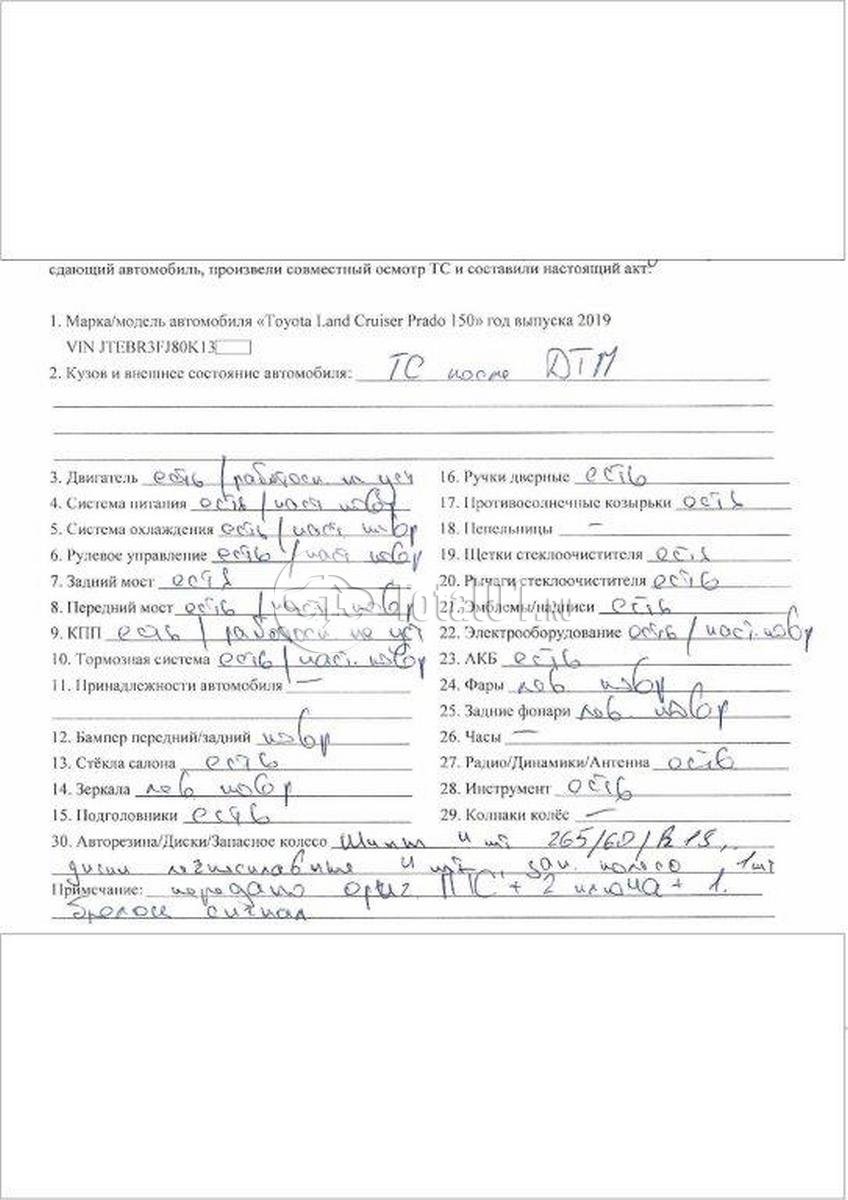 сдающий автомобиль, произвели совместный осмотр ТС и составили настоящий акт:
1. Марка/модель автомобиля «Toyota Land Cruiser Prado 150» год выпуска 2019
VIN JTEBR3FJ80K13
2. Кузов и внешнее состояние автомобиля: ТС после ДТП
3. Двигатель есть / работосп не уст
4. Система питания есть / част повр
5. Система охлаждения есть / част повр
6. Рулевое управление есть / част повр
7. Задний мост есть
8. Передний мост есть / част повр
9. КПП есть / работосп не уст
10. Тормозная система есть / част. повр
11. Принадлежности автомобиля —
12. Бампер передний/задний повр
13. Стёкла салона есть
14. Зеркала лев повр
15. Подголовники есть
16. Ручки дверные есть
17. Противосолнечные козырьки есть
18. Пепельницы —
19. Щетки стеклоочистителя есть
20. Рычаги стеклоочистителя есть
21. Эмблемы/надписи есть
22. Электрооборудование есть / част. повр
23. АКБ есть
24. Фары лев повр
25. Задние фонари лев повр
26. Часы —
27. Радио/Динамики/Антенна есть
28. Инструмент есть
29. Колпаки колёс —
30. Авторезина/Диски/Запасное колесо Шины 4 шт 265/60/R18,
диски легкосплавные 4 шт, зап. колесо 1шт
Примечание: передано ориг. ПТС + 2 ключа + 1.
брелок сигнал
Total01.ru